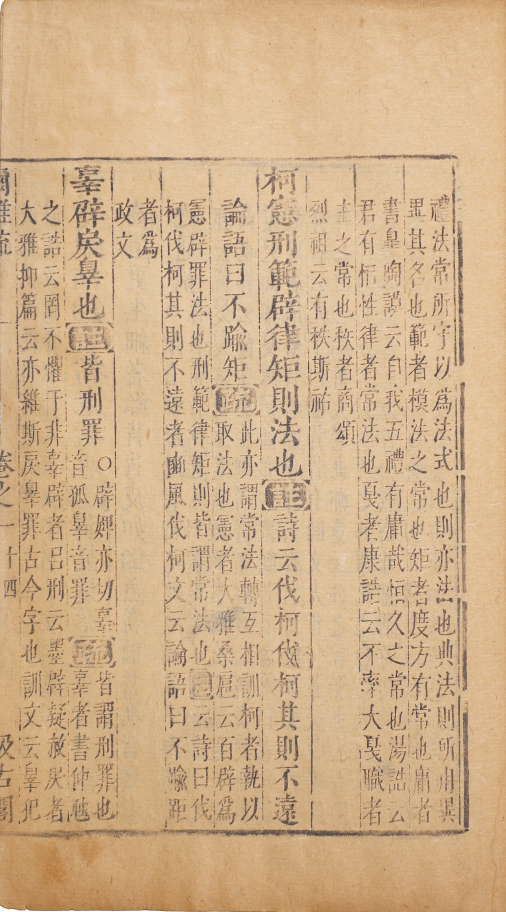 禮法常所字以爲法式也則亦法也典法則所用異
異其名也範者模法之常也矩者度方有常也庸者
書臯陶謨云自我五禮有庸哉恒久之常也湯誥云
君有恒性律者常法也戛者康誥云不率大戛職者
主之常也秩者商頌
烈祖云有秩斯祜
柯憲刑範辟律矩則法也註詩云伐柯伐柯其則不遠
論語曰不踰矩疏此亦謂常法轉互相訓柯者執以
取法也憲者大雅桑扈云百辟爲
憲辟罪法也刑範律矩則皆謂常法也註云詩曰伐
柯伐柯其則不遠者豳風伐柯文云論語曰不踰距
者爲
政文
辜辟戾辠也註皆刑罪○辟婢亦切辜
音孤辠音罪疏皆謂刑罪也
辜者書仲虺
之誥云罔不懼于非辜辟者呂刑云墨辟疑赦戾者
大雅抑篇云亦維斯戾辠罪古今字也訓文云辠犯
爾雅疏 卷之一 十四 汲古閣